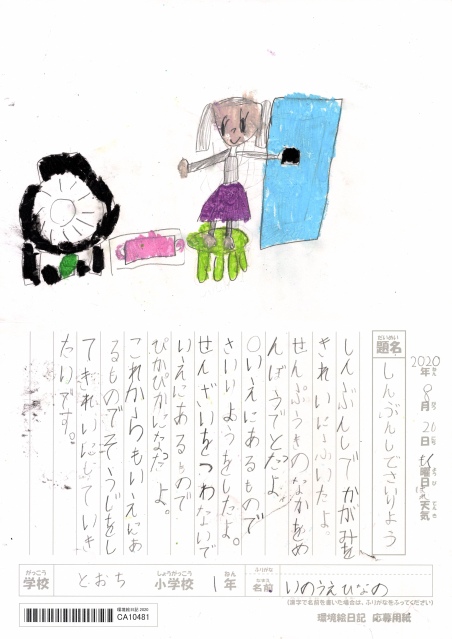 2020年 8月 26日 もく曜日 天気
だいめい
題名
しんぶんしでさいりよう
しんぶんしでかがみを
きれいにふいたよ。
せんぷうきのなかをめ
んぼうでとったよ。
○いえにあるもので
さいりようをしたよ。
せんざいをつかわないで
いえにあるもので
ぴかぴかになったよ。
これからもいえにあ
るものでそうじをし
てきれいにしていき
たいです。
がっこう
学校 とおち
しょうがっこう
小学校 1
ねん
年
ふりがな
なまえ
名前 いのうえひなの
(漢字で名前を書いた場合は、ふりがなをふってください)
環境絵日記 2020
CA10481
環境絵日記 応募用紙